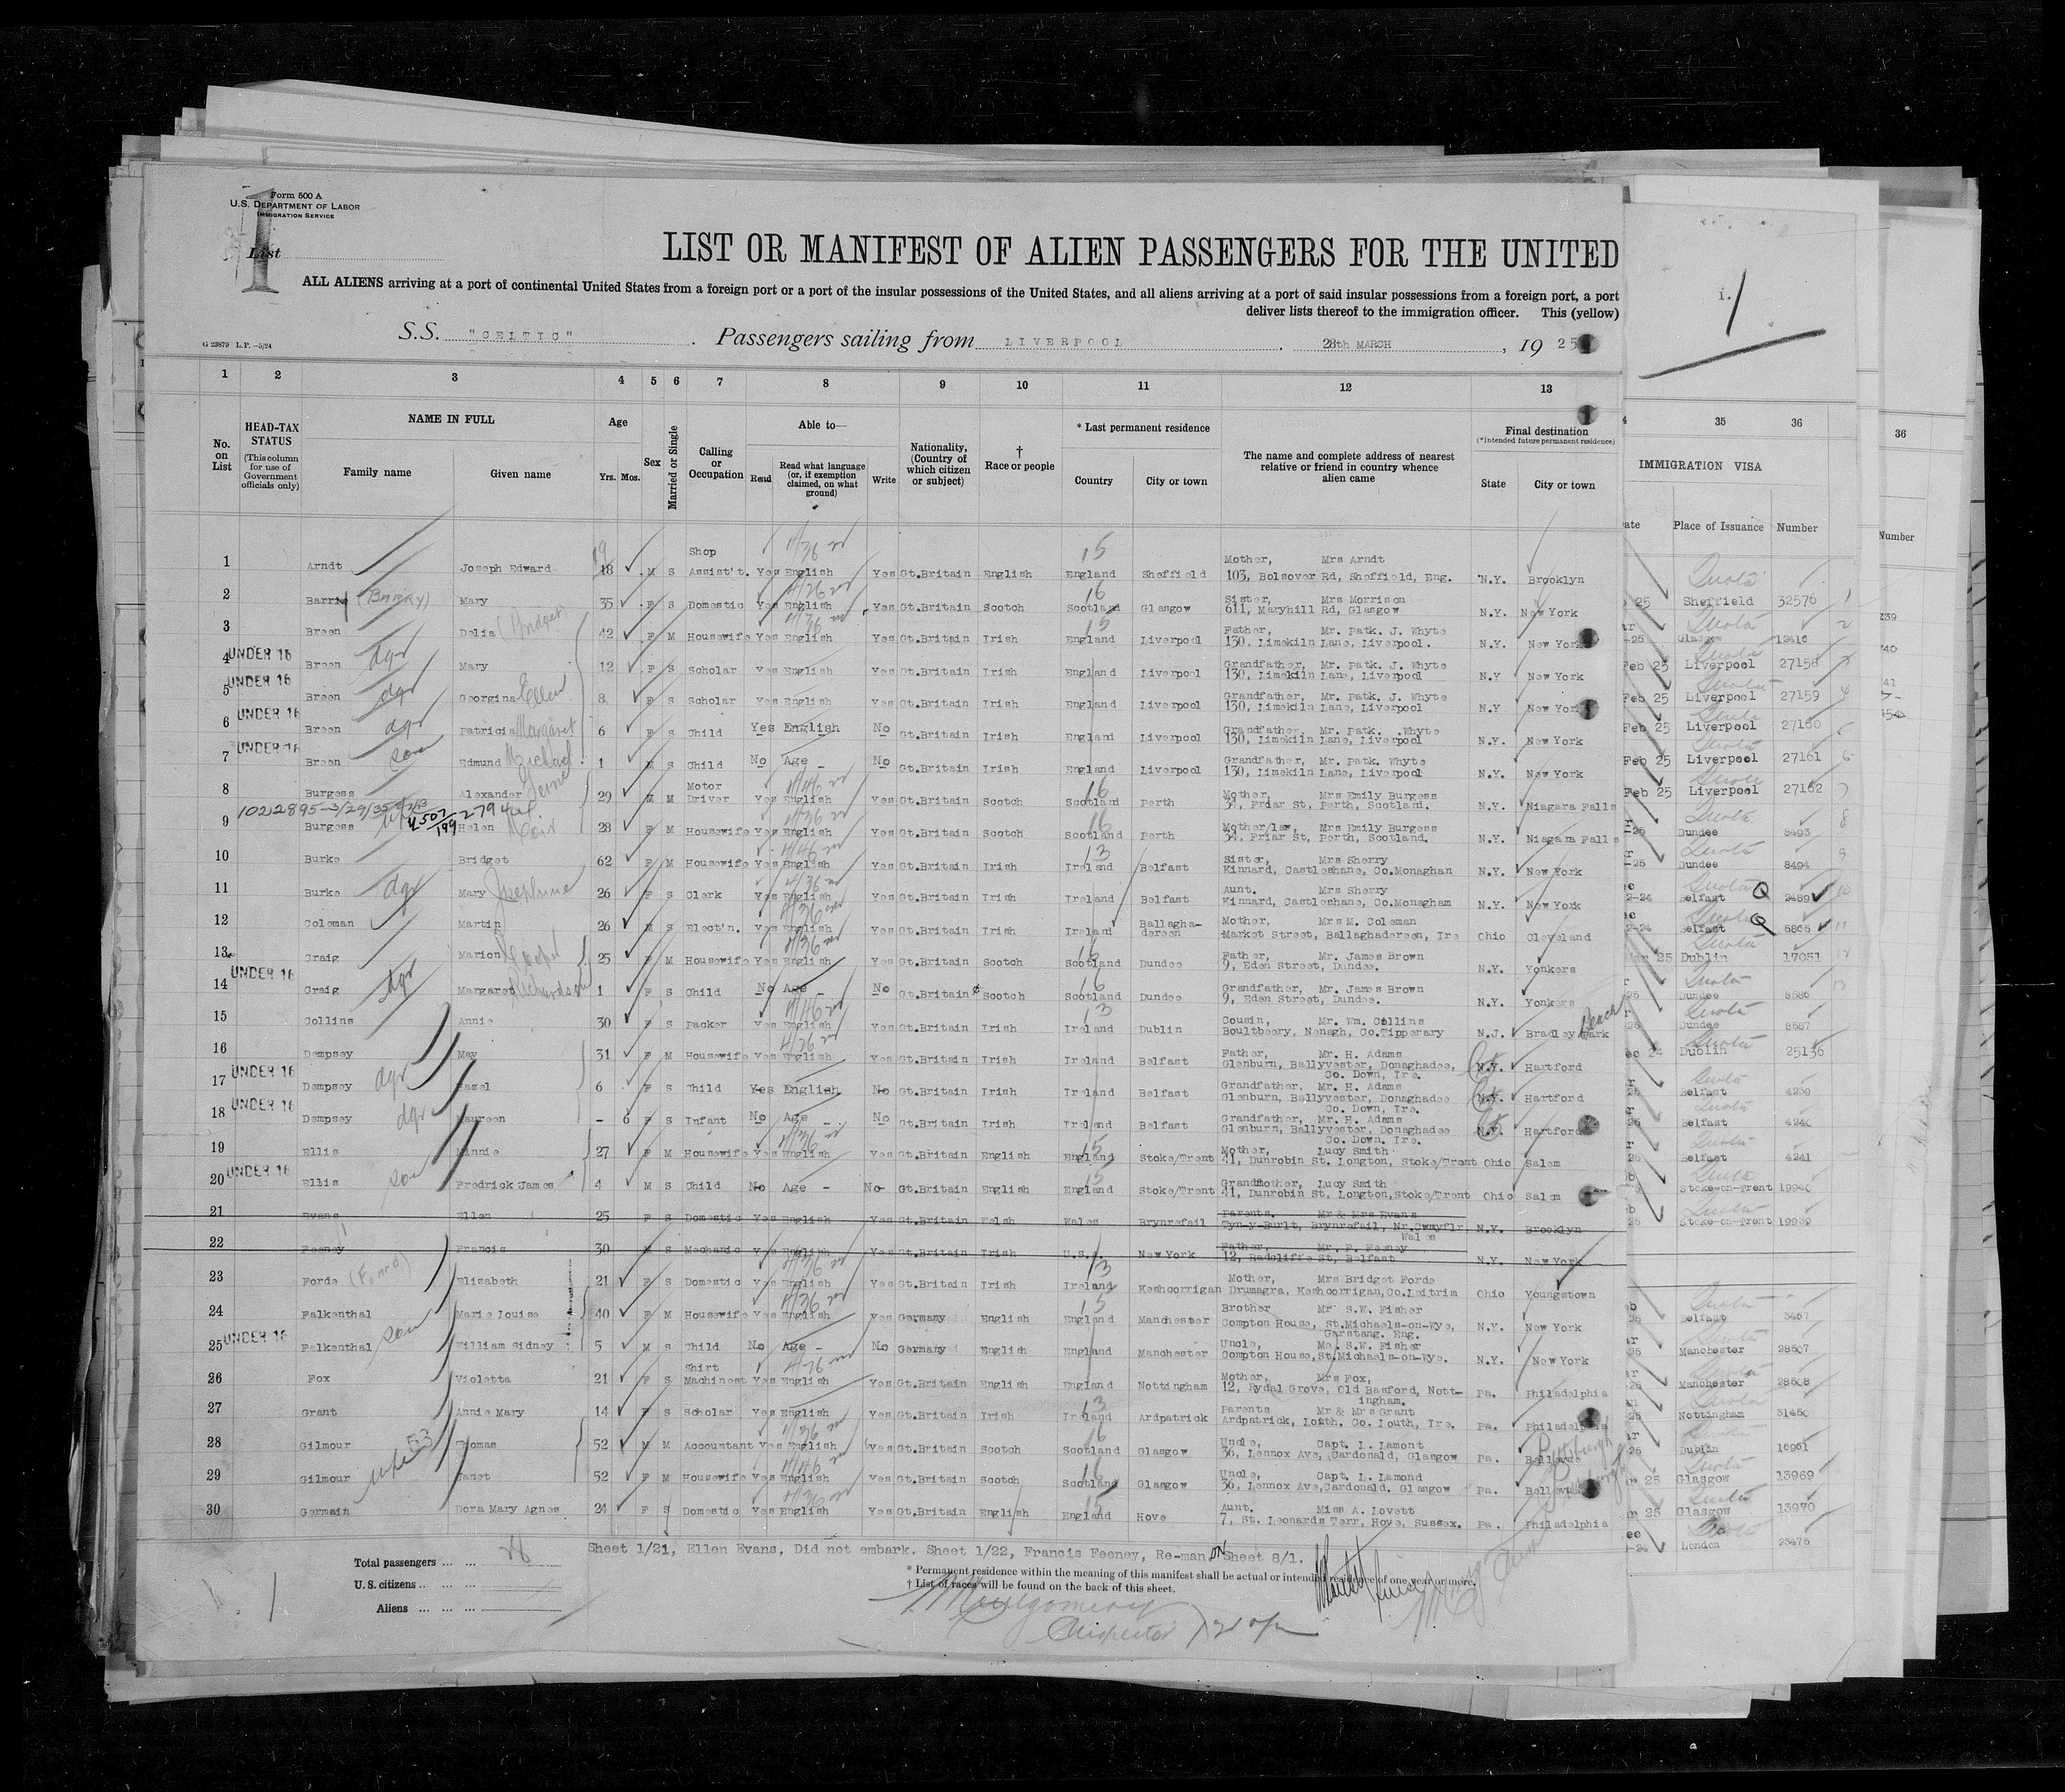 Form 500 A
U.S. DEPARTMENT OF LABOR
IMMIGRATION SERVICE
List 1
LIST OR MANIFEST OF ALIEN PASSENGERS FOR THE UNITED
ALL ALIENS arriving at a port of continental United States from a foreign port or a port of the insular possessions of the United States, and all aliens arriving at a port of said insular possessions from a foreign port, a port
deliver lists thereof to the immigration officer. This (yellow)
G 23879 L.P.—5/24
S.S. "CELTIC" Passengers sailing from LIVERPOOL, 28th MARCH, 1925
1 2 3 4 5 6 7 8 9 10 11 12 13 35 36 36
No. on List
HEAD-TAX STATUS (This column for use of Government officials only)
NAME IN FULL
Family name Given name
Age
Yrs. Mos.
Sex
Married or Single
Calling or Occupation
Able to—
Read Read what language (or, if exemption claimed, on what ground) Write
Nationality, (Country of which citizen or subject)
† Race or people
* Last permanent residence
Country City or town
The name and complete address of nearest relative or friend in country whence alien came
Final destination
(*Intended future permanent residence)
State City or town
IMMIGRATION VISA
ate Place of Issuance Number
Number
1 Arndt Joseph Edward 18 19 M S Shop Assist't. Yes English Yes Gt.Britain English England Sheffield Mother, Mrs Arndt 103, Bolsover Rd, Sheffield, Eng. N.Y. Brooklyn
2 Barrie (BARRY) Mary 35 F S Domestic Yes English Yes Gt.Britain Scotch Scotland Glasgow Sister, Mrs Morrison 611, Maryhill Rd, Glasgow N.Y. New York
3 Breen Delia (Bridget) 42 F M Housewife Yes English Yes Gt.Britain Irish England Liverpool Father, Mr. Patk. J. Whyte 130, Limekiln Lane, Liverpool. N.Y. New York
4 UNDER 16 Breen dgr Mary 12 F S Scholar Yes English Yes Gt.Britain Irish England Liverpool Grandfather, Mr. Patk. J. Whyte 130, Limekiln Lane, Liverpool N.Y New York
5 UNDER 16 Breen dgr Georgina Ellen 8 F S Scholar Yes English Yes Gt.Britain Irish England Liverpool Grandfather, Mr. Patk. J. Whyte 130, Limekiln Lane, Liverpool N.Y New York
6 UNDER 16 Breen dgr Patricia Margaret 6 F S Child Yes English No Gt.Britain Irish England Liverpool Grandfather, Mr. Patk. Whyte 130, Limekiln Lane, Liverpool N.Y. New York
7 UNDER 16 Breen son Edmund Michael 1 M S Child No Age - No Gt.Britain Irish England Liverpool Grandfather, Mr. Patk. Whyte 130, Limekiln Lane, Liverpool N.Y. New York
8 Burgess Alexander 29 M M Motor Driver Yes English Yes Gt.Britain Scotch Scotland Perth Mother, Mrs Emily Burgess 34, Friar St, Perth, Scotland. N.Y. Niagara Falls
9 Burgess Helen 28 F M Housewife Yes English Yes Gt.Britain Scotch Scotland Perth Mother/law, Mrs Emily Burgess 34, Friar St, Perth, Scotland. N.Y. Niagara Falls
10 Burke Bridget 62 F M Housewife Yes English Yes Gt.Britain Irish Ireland Belfast Sister, Mrs Sherry Kinnard, Castleshane, Co.Monaghan N.Y. New York
11 Burke dgr Mary Josephine 26 F S Clerk Yes English Yes Gt.Britain Irish Ireland Belfast Aunt. Mrs Sherry Kinnard, Castleshane, Co.Monagham N.Y. New York
12 Coleman Martin 26 M S Elect'n. Yes English Yes Gt.Britain Irish Ireland Ballagha-dereen Mother, Mrs M. Coleman Market Street, Ballaghadereen, Ire Ohio Cleveland
13 Craig Marion Cooper 25 F M Housewife Yes English Yes Gt.Britain Scotch Scotland Dundee Father, Mr. James Brown 9, Eden Street, Dundee. N.Y. Yonkers
14 UNDER 16 Craig dgr Margaret Richardson 1 F S Child No Age - No Gt.Britain Scotch Scotland Dundee Grandfather, Mr. James Brown 9, Eden Street, Dundee. N.Y. Yonkers
15 Collins Annie 30 F S Packer Yes English Yes Gt.Britain Irish Ireland Dublin Cousin, Mr. Wm. Collins Boultbeery, Nenagh, Co.Tipperary N.J. Bradley Park Beach
16 Dempsey May 31 F M Housewife Yes English Yes Gt.Britain Irish Ireland Belfast Father, Mr. H. Adams Glenburn, Ballyvester, Donaghadee, Co. Down, Ire. N.Y. Hartford
17 UNDER 16 Dempsey dgr Hazel 6 F S Child Yes English No Gt.Britain Irish Ireland Belfast Grandfather, Mr. H. Adams Glenburn, Ballyvester, Donaghadee Co. Down, Ire. N.Y. Hartford
18 UNDER 16 Dempsey dgr Maureen - 6 F S Infant No Age No Gt.Britain Irish Ireland Belfast Grandfather, Mr. H. Adams Glenburn, Ballyvester, Donaghadee Co. Down. Ire. N.Y. Hartford
19 Ellis Minnie 27 F M Housewife Yes English Yes Gt.Britain English England Stoke/Trent Mother, Lucy Smith 41, Dunrobin St. Longton, Stoke/Trent Ohio Salem
20 UNDER 16 Ellis son Fredrick James 4 M S Child No Age - No Gt.Britain English England Stoke/Trent Grandmother, Lucy Smith 41, Dunrobin St, Longton,Stoke/Trent Ohio Salem
21 Evans Ellen 25 F S Domestic Yes English Yes Gt.Britain Welsh Wales Brynrefail Parents. Mr & Mrs Evans Tyn-y-Burlt, Brynrefail, Nr.Cwmyflr Wales N.Y. Brooklyn
22 Feeney Francis 30 M S Mechanic Yes English Yes Gt.Britain Irish U.S.A. New York Father, Mr. F. Feeney 12, Radcliffe St, Belfast N.Y. New York
23 Forde Elizabeth 21 F S Domestic Yes English Yes Gt.Britain Irish Ireland Keshcorrigan Mother, Mrs Bridget Forde Drumagra, Keshcorrigan,Co.Leitrim Ohio Youngstown
24 Falkenthal Marie Louise 40 F M Housewife Yes English Yes Germany English England Manchester Brother Mr S.W. Fisher Compton House, St.Michaels-on-Wye, Garstang. Eng. N.Y. New York
25 UNDER 16 Falkenthal son William Sidney 5 M S Child No Age - No Germany English England Manchester Uncle, Mr. S.W. Fisher Compton House,St.Michaels-on-Wye. N.Y. New York
26 Fox Violetta 21 F S Shirt Machinest Yes English Yes Gt.Britain English England Nottingham Mother, Mrs Fox, 12, Rydal Grove, Old Basford, Nott-ingham. Pa. Philadelphia
27 Grant Annie Mary 14 F S Scholar Yes English Yes Gt.Britain Irish Ireland Ardpatrick Parents Mr & Mrs Grant Ardpatrick, Louth. Co. Louth, Ire. Pa. Philadelphia
28 Gilmour Thomas 52 M M Accountant Yes English Yes Gt.Britain Scotch Scotland Glasgow Uncle, Capt. L. Lamont 36, Lennox Ave, Cardonald, Glasgow Pa. Bellevue Pittsburgh
29 Gilmour wife Janet 52 F M Housewife Yes English Yes Gt.Britain Scotch Scotland Glasgow Uncle, Capt. L. Lamond 36, Lennox Ave,Cardonald. Glasgow Pa. Bellevue Pittsburgh
30 Germain Dora Mary Agnes 24 F S Domestic Yes English Yes Gt.Britain English England Hove Aunt. Miss A. Lovett 7, St. Leonards Terr, Hove, Sussex. Pa. Philadelphia
25 Sheffield 32576
-25 Glasgow 12416
Feb 25 Liverpool 27158
Feb 25 Liverpool 27159
Feb 25 Liverpool 27160
Feb 25 Liverpool 27161
Feb 25 Liverpool 27162
-25 Dundee 8493
-25 Dundee 8494
2-24 Belfast 2489
2-24 Belfast 5865
Mar 25 Dublin 17051
25 Dundee 8686
25 Dundee 8687
ec 24 Dublin 25136
25 Belfast 4239
25 Belfast 4240
25 Belfast 4241
Stoke-on-Trent 19940
25 Stoke-on-Trent 19939
25 Belfast 3467
25 Manchester 28507
25 Manchester 28508
25 Nottingham 31450
25 Dublin 16961
ar 25 Glasgow 13969
ar 25 Glasgow 13970
-24 London 23475
Sheet 1/21, Ellen Evans, Did not embark. Sheet 1/22, Francis Feeney, Re-man. on Sheet 8/1.
Total passengers ... ... 28
U.S. citizens ... ...
Aliens ... ... ...
* Permanent residence within the meaning of this manifest shall be actual or intended residence of one year or more.
† List of races will be found on the back of this sheet.
Montgomery
Inspector